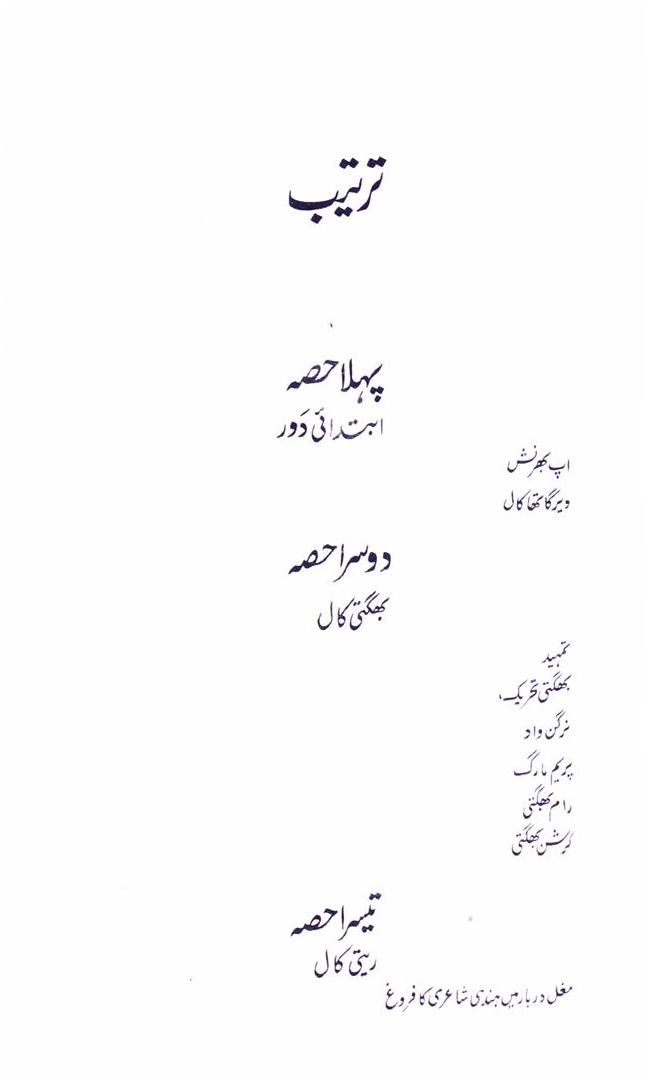 ترتیب
پہلا حصہ
ابتدائی دَور
اپ بھرنش
ویرگاتھا کال
دوسرا حصہ
بھگتی کال
تمہید
بھگتی تحریک،
نرگن واد
پریم مارگ
رام بھگتی
کرشن بھگتی
تیسرا حصہ
ریتی کال
مغل دربار میں ہندی شاعری کا فروغ